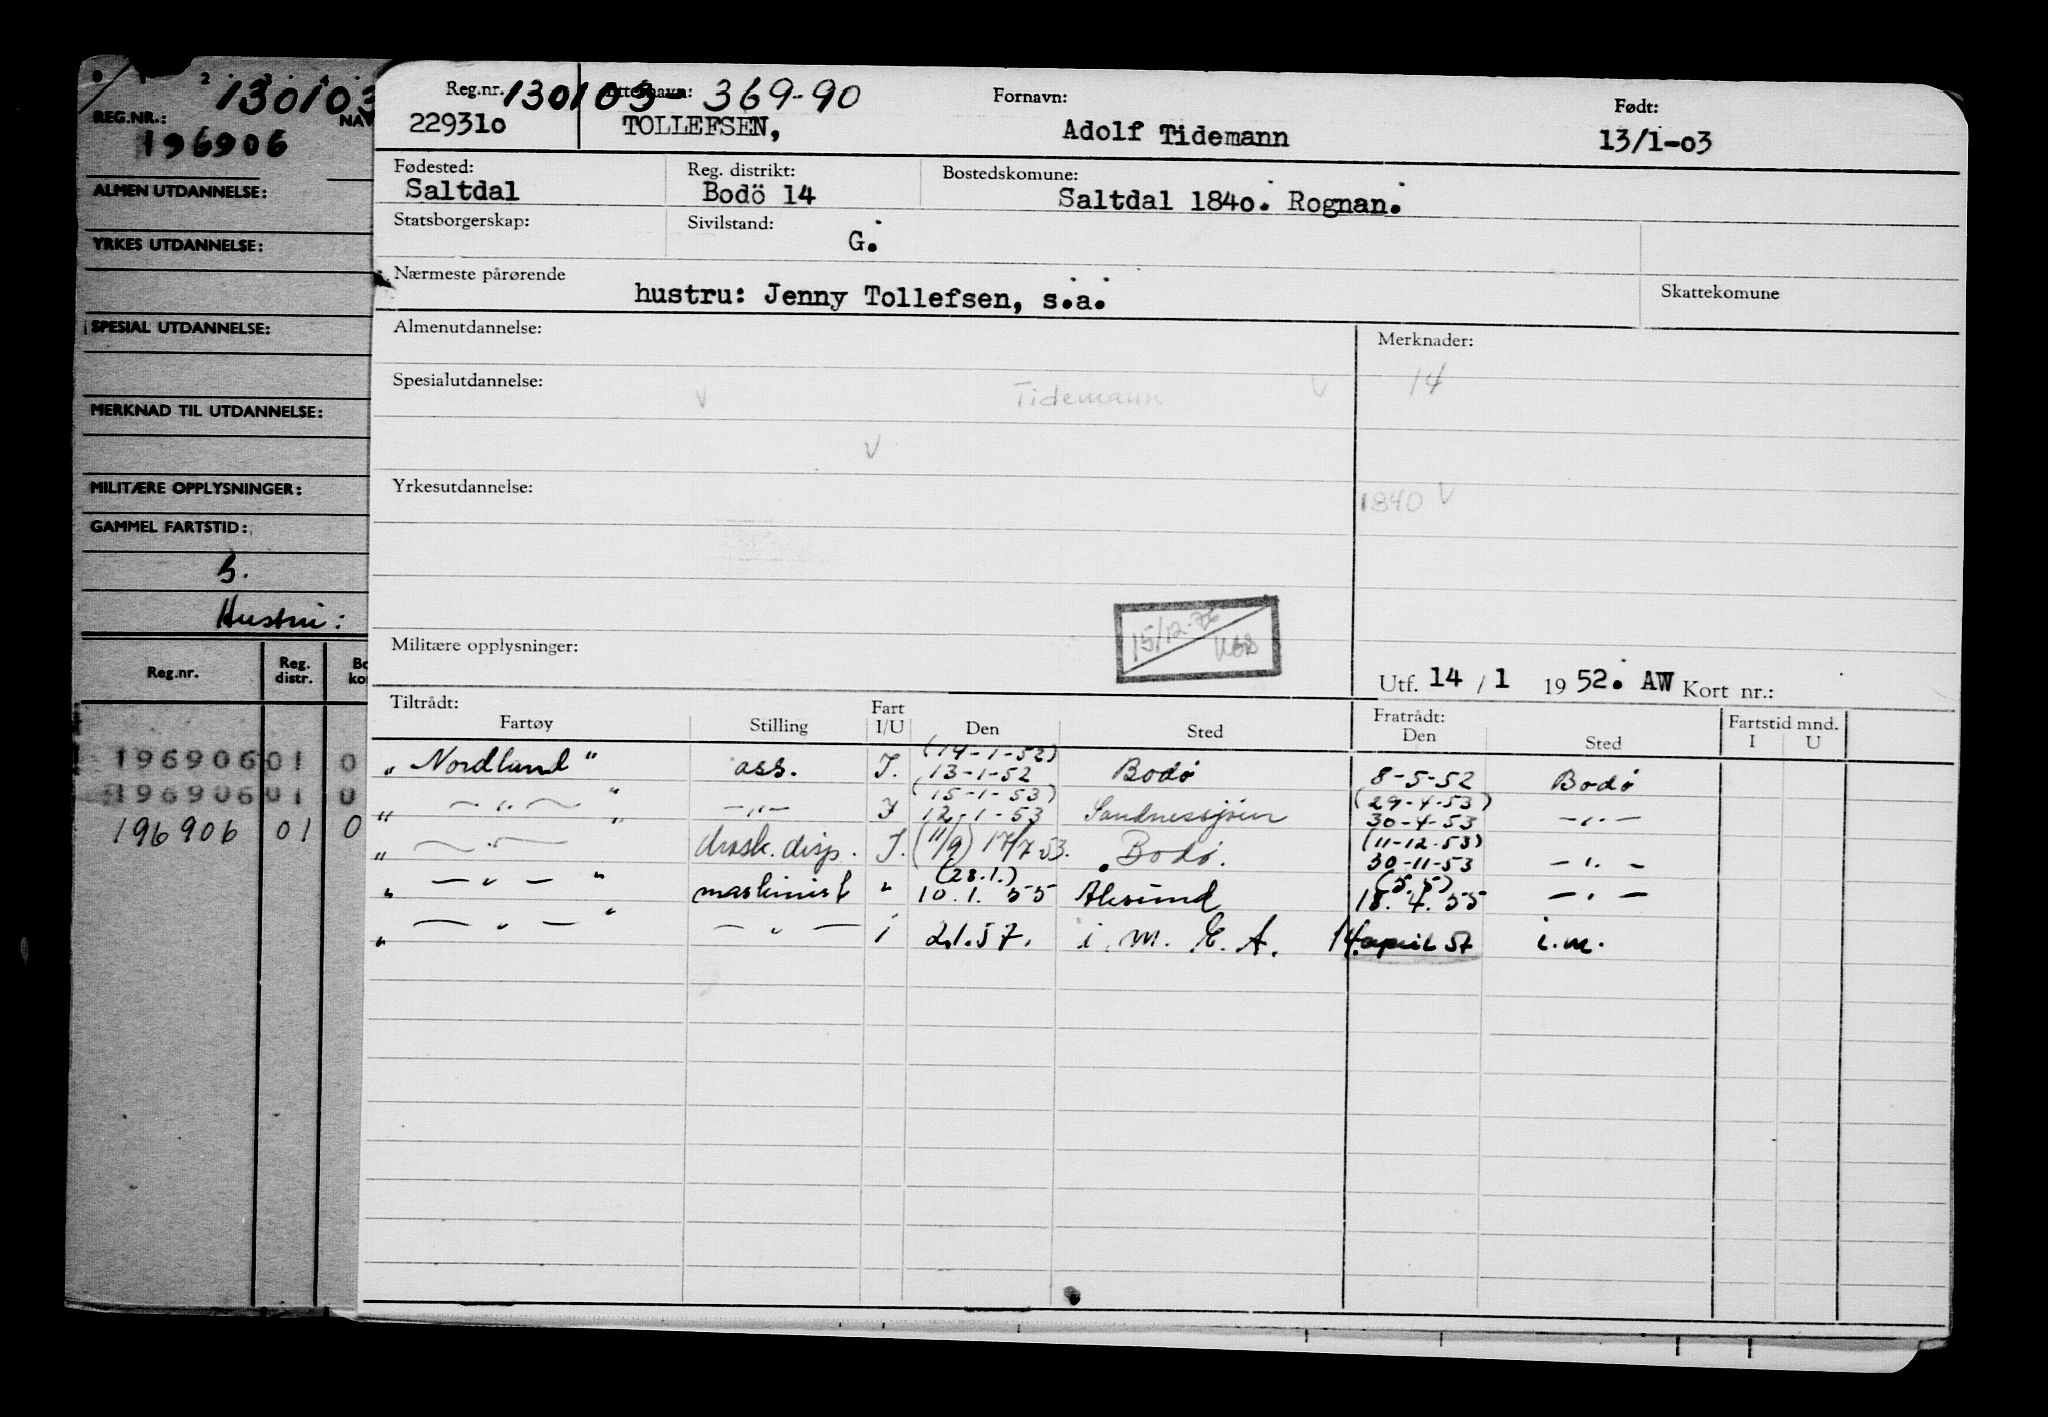 0 1 2 3 4
130103
REG.NR.: NAV
196906
ALMEN UTDANNELSE:
YRKES UTDANNELSE:
SPESIAL UTDANNELSE:
MERKNAD TIL UTDANNELSE:
MILITÆRE OPPLYSNINGER:
GAMMEL FARTSTID:
Hustru:
Reg.nr. Reg. distr. Bo ko
196906 01 0
196906 01 0
196906 01 0
Reg.nr. 130103- 369-90 Fornavn: Født:
229310 TOLLEFSEN, Adolf Tidemann 13/1-03
Fødested: Reg. distrikt: Bostedskomune:
Saltdal Bodö 14 Saltdal 1840. Rognan.
Statsborgerskap: Sivilstand:
G.
Nærmeste pårørende
hustru: Jenny Tollefsen, s.a. Skattekomune
Almenutdannelse: Merknader:
Spesialutdannelse: V Tidemann V 14
V
Yrkesutdannelse: 1840 V
15/12-76
Militære opplysninger:
Utf. 14 / 1 19 52. AW Kort nr.:
Tiltrådt: Fratrådt: Fartstid mnd.
Fartøy Stilling Fart I/U Den Sted Den Sted I U
(14-1-52)
„ Nordland " ass. I. 13-1-52 Bodø 8-5-52 Bodø
(15-1-53) (29-4-53)
„ — „ — " — „ — I 12-1-53 Sandnessjøen 30-4-53 — „ —
(11-12-53)
„ — „ — mask. disp. I. (11/9) 17/7 53. Bodø. 30-11-53 — „ —
(28.1.) (5.5)
„ — „ — " maskinist " 10.1. 55 Alesund 18. 4. 55 — „ —
„ — „ — " — „ — i 2.1.57. i. m. E. A. 14. april 57 i.m.